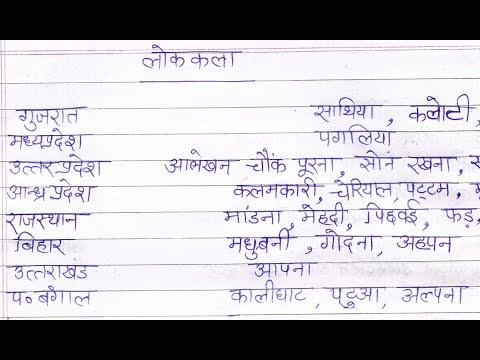 लोककला
गुजरात साथिया, कलोटी,
मध्यप्रदेश पगलिया
उत्तर प्रदेश आलेखन-चौंक पूरना, सोन रखना,
आन्ध्र प्रदेश कलमकारी, चेरियल, पट्टम,
राजस्थान मांडना, मेहंदी, पिछवई, फड़,
बिहार मधुबनी, गोदना, अहपन
उत्तराखंड आपना
प० बंगाल कालीघाट, पटुआ, अल्पना